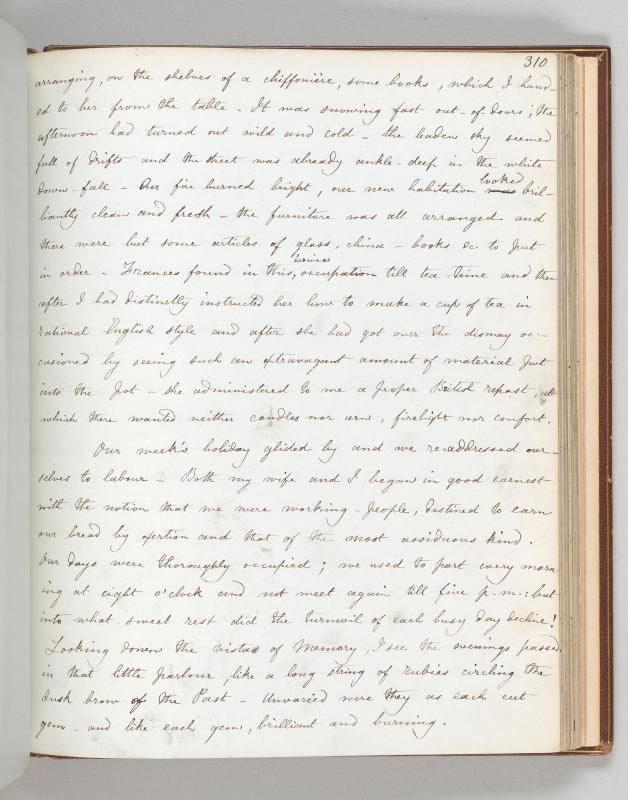 310
arranging, on the shelves of a chiffonière, some books, which I hand-
ed to her from the table - It was snowing fast out-of-doors; the
afternoon had turned out wild and cold - the leaden sky seemed
full of drifts and the street was already ankle-deep in the white
looked
down-fall - Our fire burned bright, our new habitation was bril-
liantly clean and fresh - the furniture was all arranged and
there were but some articles of glass, china - books &c. to put
business
in order - Frances found in this, occupation till tea-time and then
after I had distinctly instructed her how to make a cup of tea in
rational English style and after she had got over the dismay oc-
casioned by seeing such an extravagant amount of material put
into the pot - she administered to me a proper British repast, at
which there wanted neither candles nor urn, firelight nor comfort.
Our week's holiday glided by and we readdressed our-
selves to labour - Both my wife and I began in good earnest
with the notion that we were working-people, destined to earn
our bread by exertion and that of the most assiduous kind.
Our days were thoroughly occupied; we used to part every morn-
ing at eight o'clock and not meet again till five p.m.: but
into what sweet rest did the turmoil of each busy day decline!
Looking down the vistas of Memory, I see the evenings passed
in that little parlour like a long string of rubies circling the
dusk brow of the Past - Unvaried were they as each cut
gem - and like each gem, brilliant and burning.